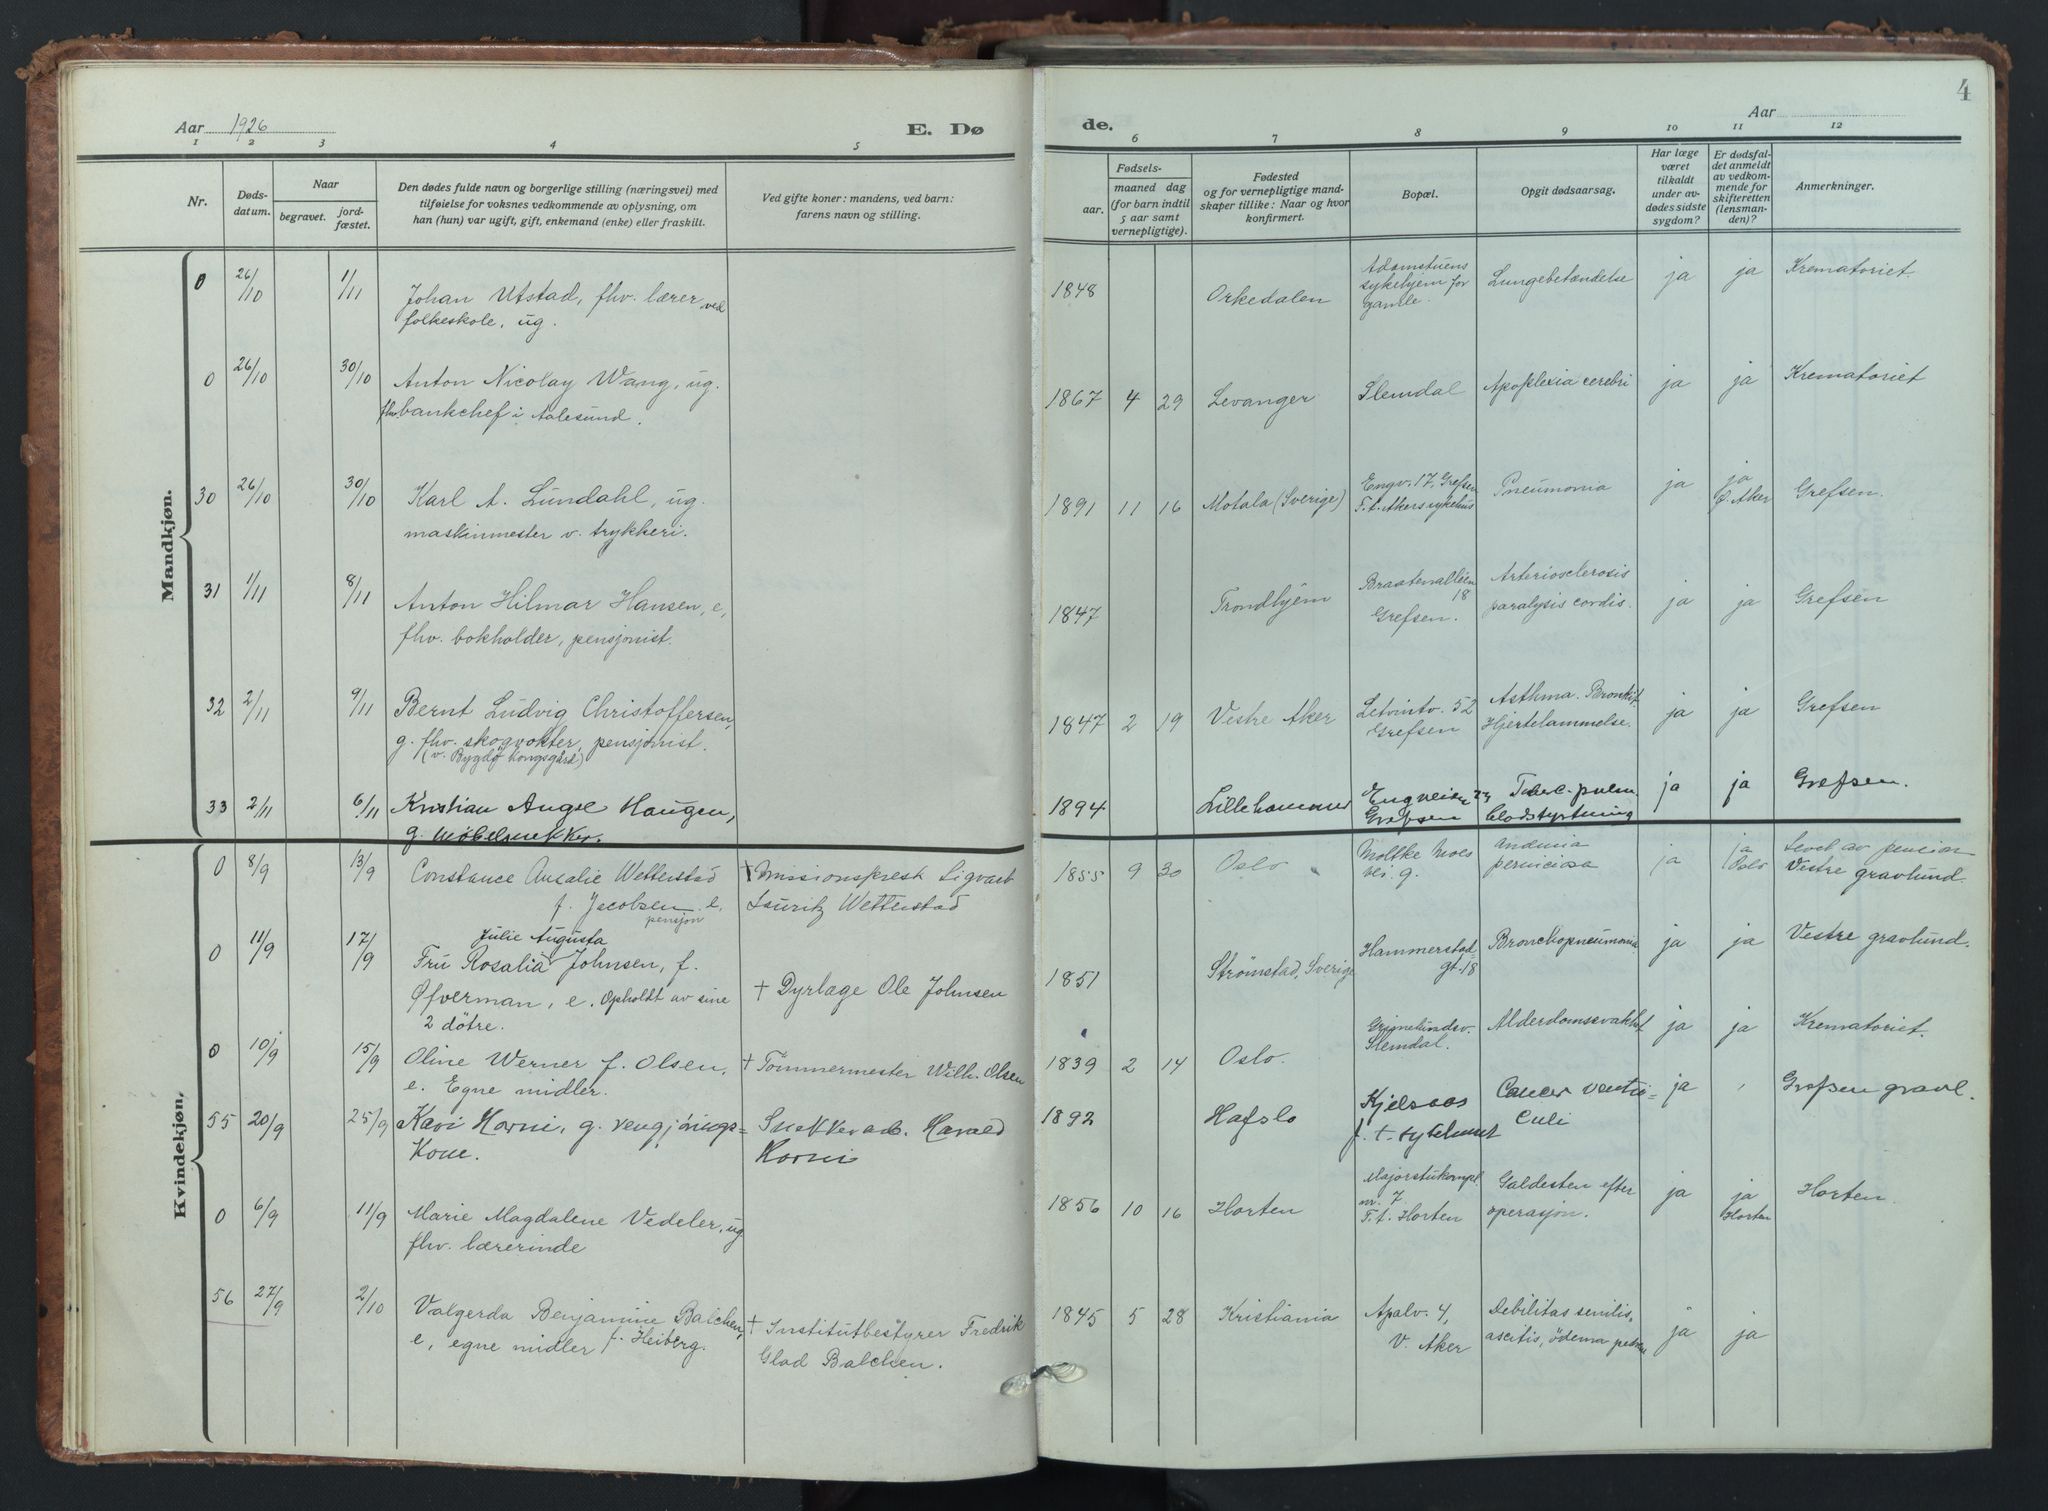 4
Aar 1926 E. Dø de. Aar
1 2 3 4 5 6 7 8 9 10 11 12
Nr.
Døds-
datum.
Naar
begravet.
jord-
fæstet.
Den dødes fulde navn og borgerlige stilling (næringsvei) med
tilføielse for voksnes vedkommende av oplysning, om
han (hun) var ugift, gift, enkemand (enke) eller fraskilt.
Ved gifte koner: mandens, ved barn:
farens navn og stilling.
Fødsels-
aar.
maaned dag
(for barn indtil
5 aar samt
vernepligtige).
Fødested
og for vernepligtige mand-
skaper tillike: Naar og hvor
konfirmert.
Bopæl.
Opgit dødsaarsag.
Har læge
været
tilkaldt
under av-
dødes sidste
sygdom?
Er dødsfal-
det anmeldt
av vedkom-
mende for
skifteretten
(lensman-
den)?
Anmerkninger.
Mandkjøn.
0 26/10 1/11 Johan Utstad, fhv. lærer ved
folkeskole, ug.
1848 Orkedalen
Adamstuens
sykehjem for
gamle.
Lungebetændelse ja ja Krematoriet.
0 26/10 30/10 Anton Nicolay Wang, ug.
fhv. bankchef i Aalesund.
1867 4 29 Levanger Slemdal Apoplexia cerebri ja ja Krematoriet
30 26/10 30/10 Karl A. Lundahl, ug.
maskinmester v. trykkeri.
1891 11 16 Motala (Sverige)
Engv. 17, Grefsen
F. t. Akers sykehus
Pneumonia ja ja
Ø. Aker
Grefsen.
31 1/11 8/11 Anton Hilmar Hansen, e,
fhv. bokholder, pensjonist.
1847 Trondhjem
Braatenalléen
18
Grefsen.
Arteriosclerosis
paralysis cordis. ja ja Grefsen
32 2/11 9/11 Bernt Ludvig Christoffersen,
g. fhv. skogvokter, pensjonist.
(v. Bygdø kongsgård)
1847 2 19 Vestre Aker
52
Grefsen
Asthma. Bronkit.
Hjertelammelse. ja ja Grefsen
33 2/11 6/11 Kristian Haugen,
g. Møbelsnekker.
1894 Lillehammer
Engveien
Grefsen
Tuberc. pulm.
blodstyrtning ja ja Grefsen.
Kvindekjøn.
0 8/9 13/9 Constance Amalie Wetterstad
f. Jacobsen e.
pensjon
† Missionsprest Sigvart
Lauritz Wetterstad
1855 9 30 Oslo
Moltke Moes
vei 9.
Anämia
perniciosa ja ja
Oslo
Levet av pension
Vestre gravlund.
0 11/9 17/9 Julie Augusta
Fru Rosalia Johnsen, f.
Øfverman, e. Opholdt av sine
2 døtre.
† Dyrlæge Ole Johnsen
1851 Strømstad, Sverige
Hammerstad-
gt. 18
Bronchopneumonia ja ja Vestre gravlund.
0 10/9 15/9 Oline Werner f. Olsen,
e. Egne midler.
† Tömmermester Wilh. Olsen
1839 2 14 Oslo.
Grimelundsv.
Slemdal.
Alderdomssvakhet ja ja Krematoriet.
55 20/9 25/9 Kari Horni, g. rengjørings-
kone.
Snekkerarb. Harald
Horni
1892 Hafslo
Kjelsaas
f. t. sykehuset
Cancer ventri-
culi
ja Grefsen gravl.
0 6/9 11/9 Marie Magdalene Vedeler, ug
fhv. lærerinde
1856 10 16 Horten
Majorstukompl.
nr. 7
F. t. Horten
Galdesten efter
operasjon. ja ja
Horten
Horten.
56 27/9 2/10 Valgerda Benjamine Balchen,
e, egne midler f. Heiberg.
† Institutbestyrer Fredrik
Glad Balchen.
1845 5 28 Kristiania
Apalv. 4,
V. Aker
Debilitas senilis,
ascitis, ödema ja ja